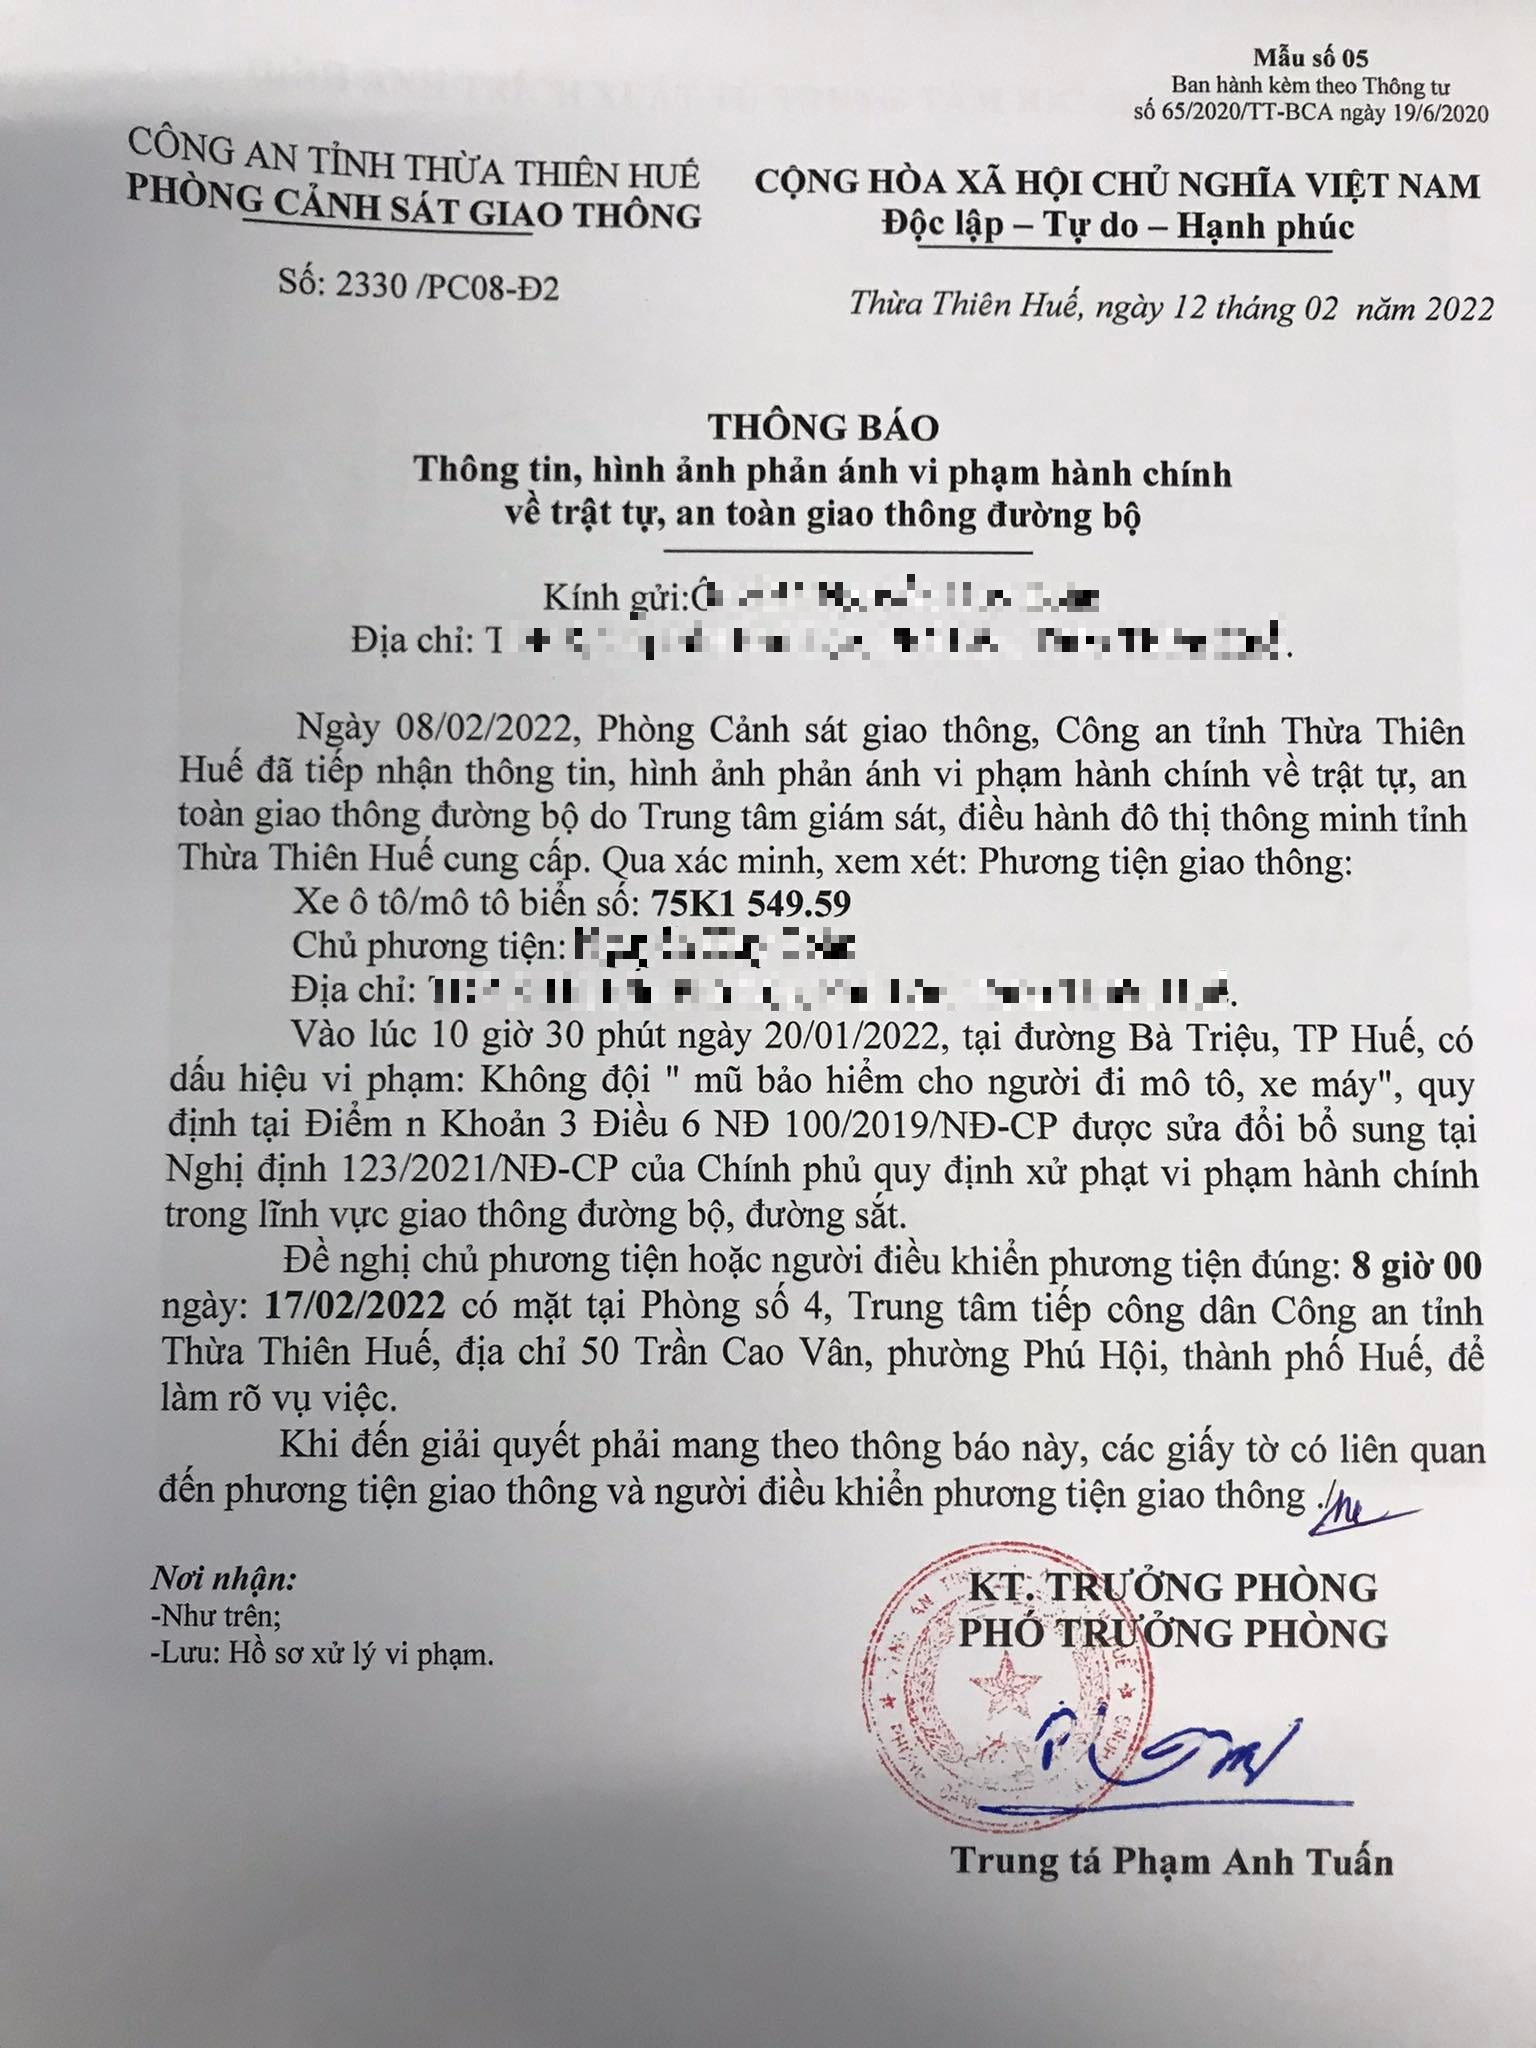 Mẫu số 05
Ban hành kèm theo Thông tư
số 65/2020/TT-BCA ngày 19/6/2020
CÔNG AN TỈNH THỪA THIÊN HUẾ
PHÒNG CẢNH SÁT GIAO THÔNG
CỘNG HÒA XÃ HỘI CHỦ NGHĨA VIỆT NAM
Độc lập – Tự do – Hạnh phúc
Số: 2330 /PC08-Đ2
Thừa Thiên Huế, ngày 12 tháng 02 năm 2022
THÔNG BÁO
Thông tin, hình ảnh phản ánh vi phạm hành chính
về trật tự, an toàn giao thông đường bộ
Kính gửi:
Địa chỉ:
Ngày 08/02/2022, Phòng Cảnh sát giao thông, Công an tỉnh Thừa Thiên
Huế đã tiếp nhận thông tin, hình ảnh phản ánh vi phạm hành chính về trật tự, an
toàn giao thông đường bộ do Trung tâm giám sát, điều hành đô thị thông minh tỉnh
Thừa Thiên Huế cung cấp. Qua xác minh, xem xét: Phương tiện giao thông:
Xe ô tô/mô tô biển số: 75K1 549.59
Chủ phương tiện:
Địa chỉ:
Vào lúc 10 giờ 30 phút ngày 20/01/2022, tại đường Bà Triệu, TP Huế, có
dấu hiệu vi phạm: Không đội " mũ bảo hiểm cho người đi mô tô, xe máy", quy
định tại Điểm n Khoản 3 Điều 6 NĐ 100/2019/NĐ-CP được sửa đổi bổ sung tại
Nghị định 123/2021/NĐ-CP của Chính phủ quy định xử phạt vi phạm hành chính
trong lĩnh vực giao thông đường bộ, đường sắt.
Đề nghị chủ phương tiện hoặc người điều khiển phương tiện đúng: 8 giờ 00
ngày: 17/02/2022 có mặt tại Phòng số 4, Trung tâm tiếp công dân Công an tỉnh
Thừa Thiên Huế, địa chỉ 50 Trần Cao Vân, phường Phú Hội, thành phố Huế, để
làm rõ vụ việc.
Khi đến giải quyết phải mang theo thông báo này, các giấy tờ có liên quan
đến phương tiện giao thông và người điều khiển phương tiện giao thông ./
Nơi nhận:
-Như trên;
-Lưu: Hồ sơ xử lý vi phạm.
KT. TRƯỞNG PHÒNG
PHÓ TRƯỞNG PHÒNG
Trung tá Phạm Anh Tuấn